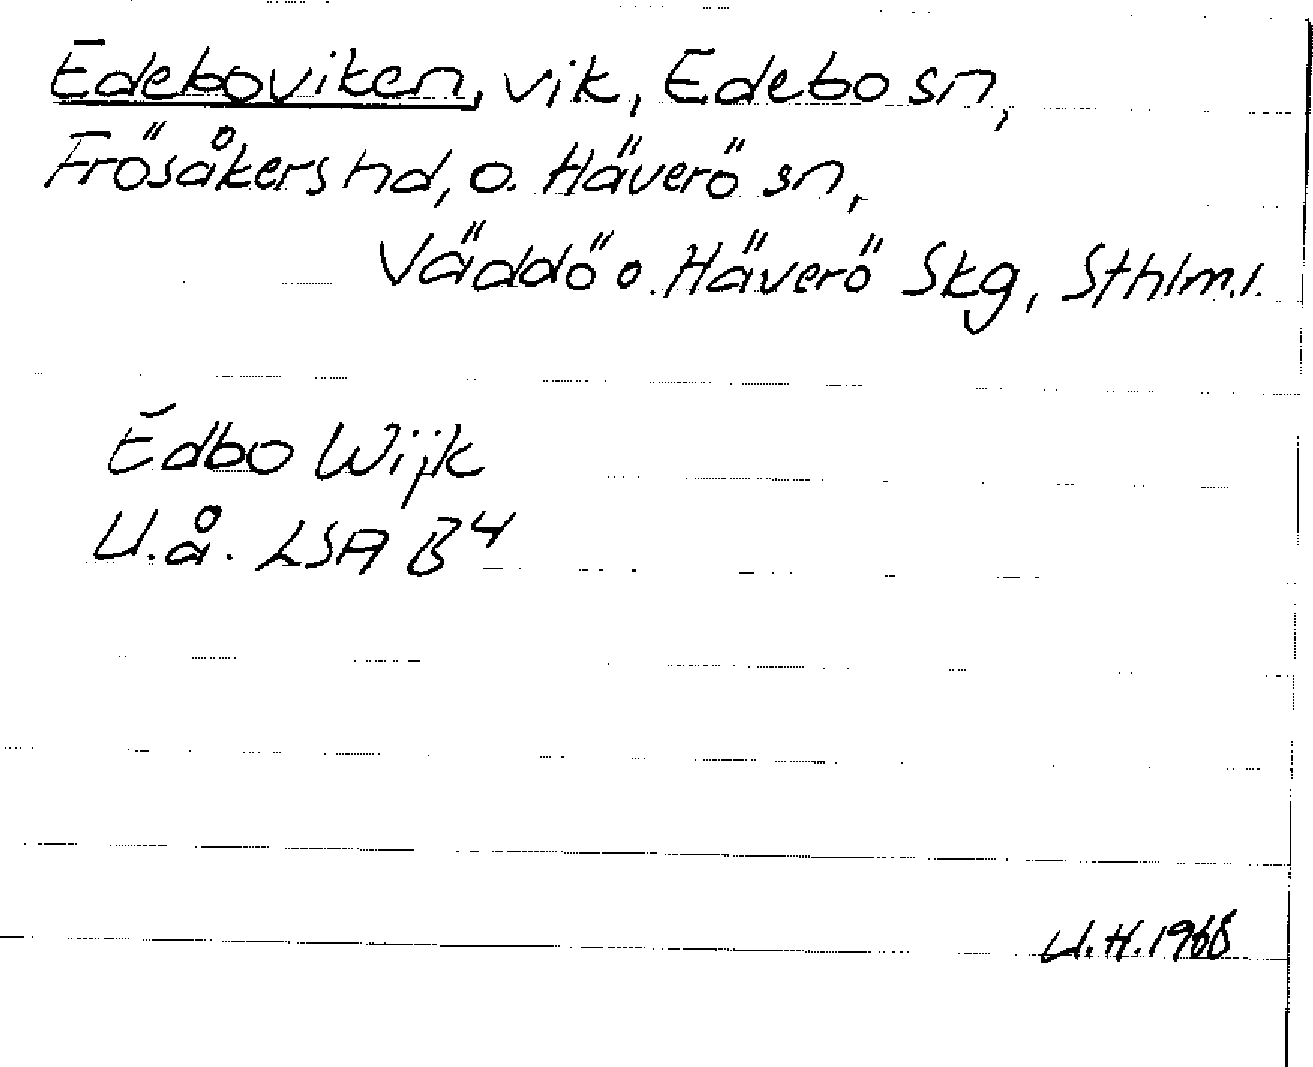 Edeboviken, vik, Edebo sn,
Frösåkers hd, o. Häverö sn,
Väddö o. Häverö Skg, Sthlm.l.
Edbo Wijk
U.å. LSA B4
U.H. 1968